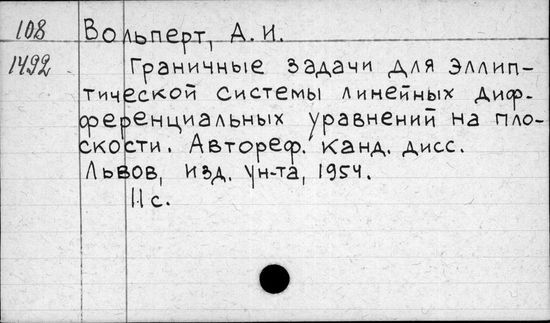 108 Вольперт, А. И.
1492 Граничные задачи для эллип-
тической системы линейных диф-
ференциальных уравнений на пло-
скости. Автореф. канд. дисс.
Львов, изд. ун-та, 1954.
11 с.